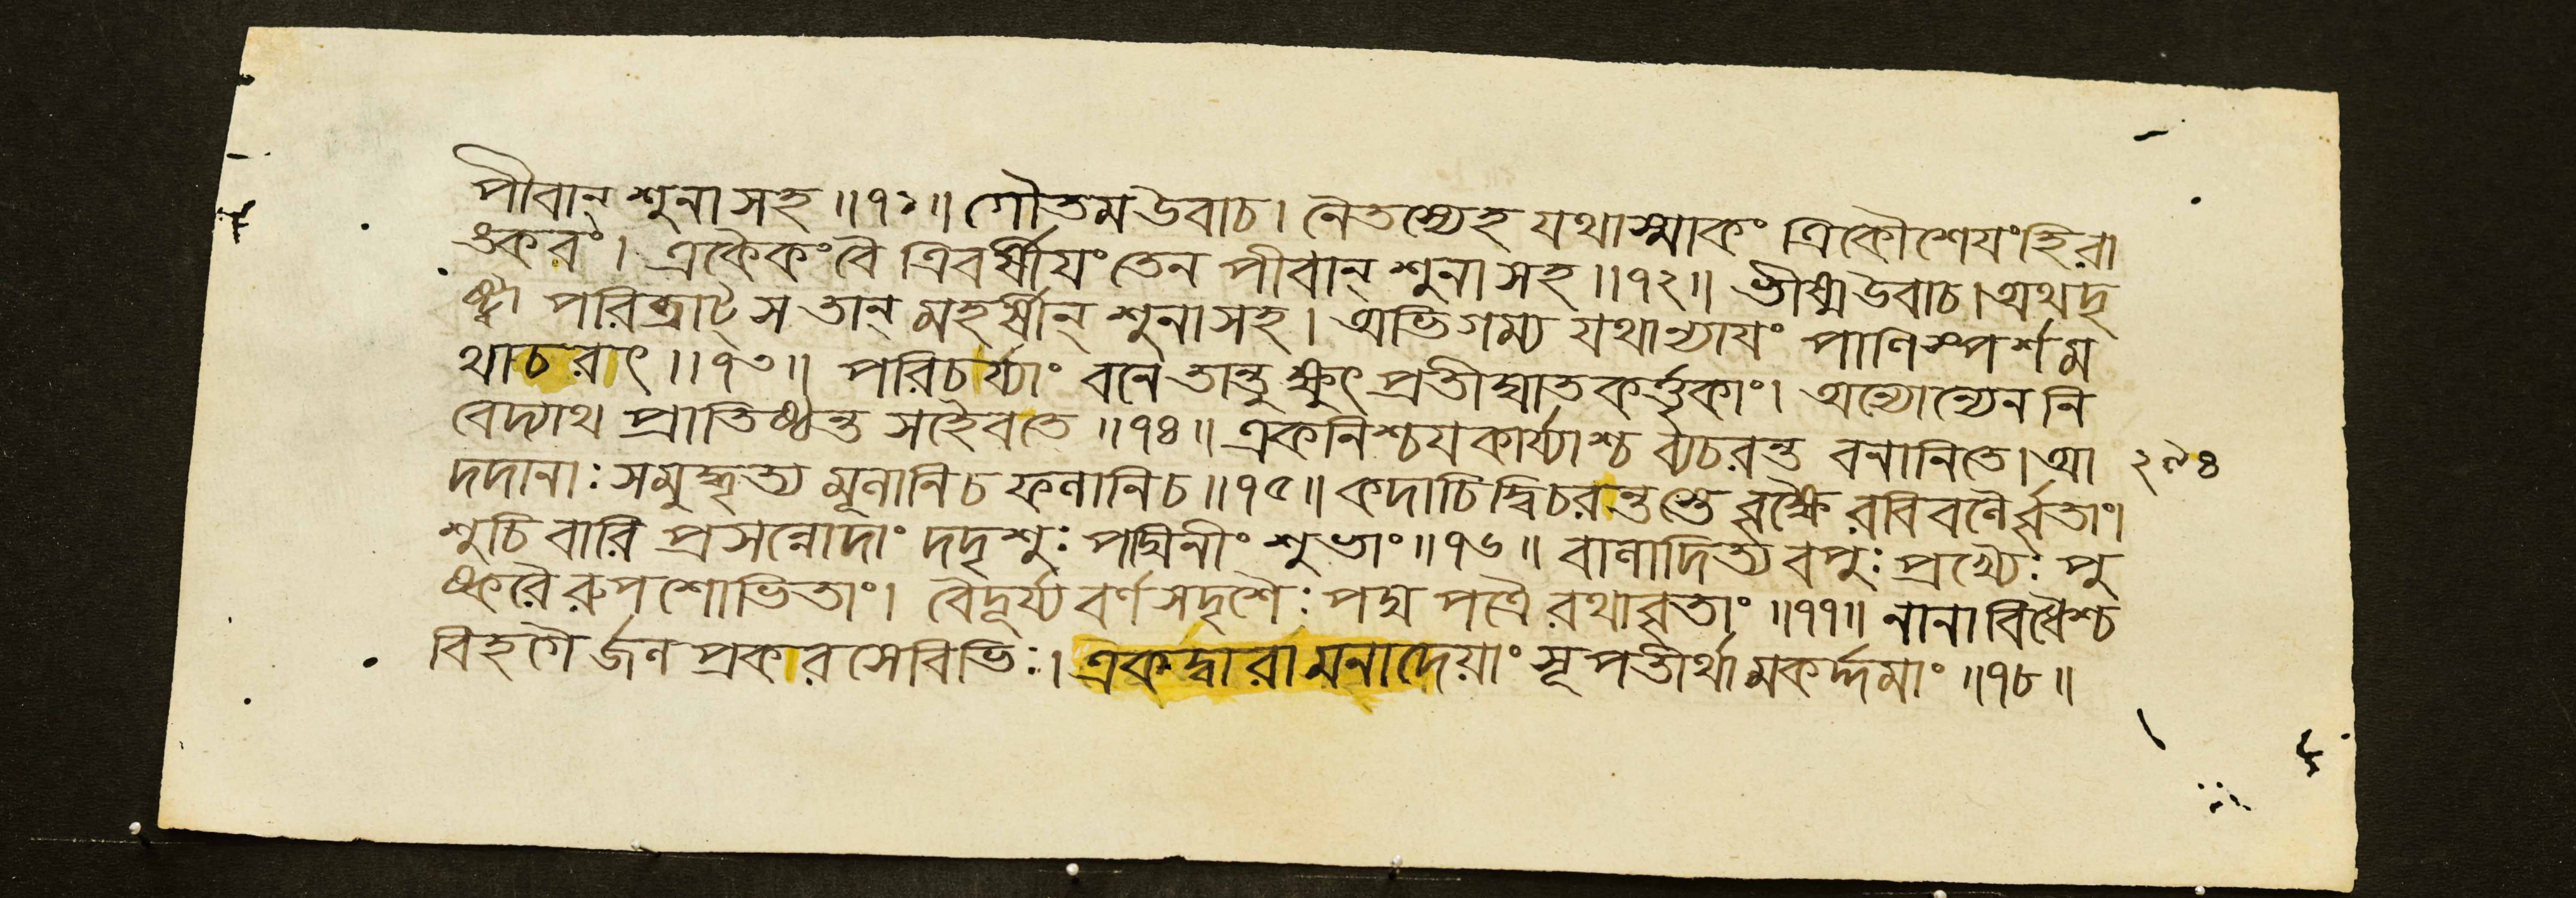 পীবান্ শুনা সহ ॥৭১॥ গৌতম উবাচ। নৈতস্যেহ যথাস্মাকং ত্রিকৌশেযংহি রা
ঙ্কবং। একৈকংবৈ ত্রিবর্ষীযং তেন পীবান্ শুনা সহ ॥৭২॥ ভীষ্ম উবাচ। অথ দৃ
ষ্ট্বা পরিব্রাট্ স তান্ মহর্ষীন্ শুনা সহ। অভিগম্য যথান্যাযং পাণিস্পর্শম
থাচরৎ ॥৭৩॥ পরিচর্য্যাং বনে তান্তু ক্ষুৎ প্রতীঘাত কর্ত্তৃকাং। অন্যোন্যেন নি
বেদ্যাথ প্রাতিষ্ঠন্ত সহৈবতে ॥৭৪॥ একনিশ্চযকার্য্যাশ্চ ব্যচরন্ত বনানিতে। আ ২৯৪
দদানাঃ সমুদ্ধৃত্য মূলানিচ ফলানিচ ॥৭৫॥ কদাচিদ্বিচরন্তস্তে বৃক্ষৈ রবিবলৈর্বৃতাং।
শুচি বারি প্রসন্নোদাং দদৃশুঃ পদ্মিনীং শুভাং ॥৭৬॥ বালাদিত্য বপুঃ প্রখ্যৈঃ পু
ষ্করৈ রুপশোভিতাং। বৈদূর্য্য বর্ণ সদৃশৈঃ পদ্ম পত্রৈ রথাবৃতাং ॥৭৭॥ নানাবিধৈশ্চ
বিহগৈ র্জল প্রকার সেবিভিঃ। একদ্বারামনাদেয়াং সূপতীর্থামকর্দ্দমাং ॥৭৮॥